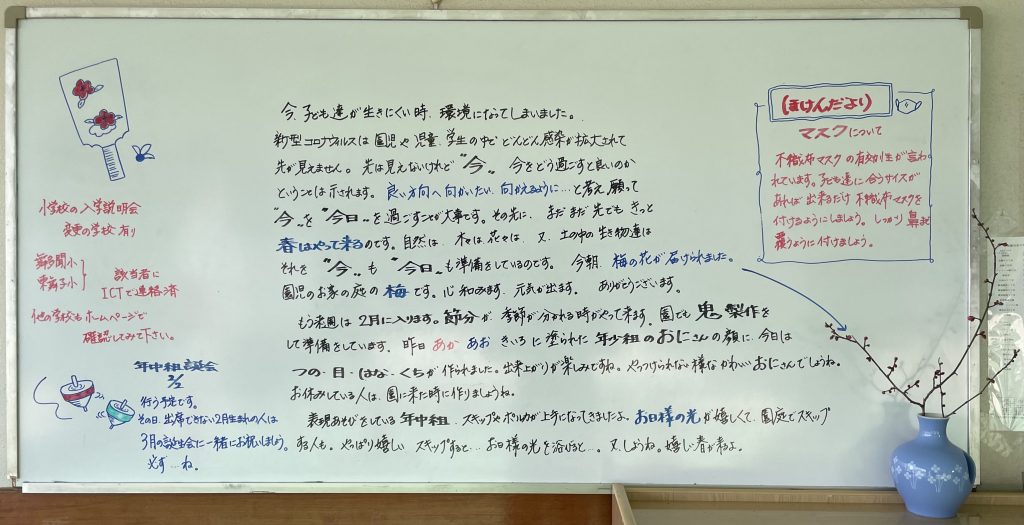 小学校の入学説明会
変更の学校有り
舞多聞小
東舞子小
該当者に
ICTで連絡済
他の学校もホームページで
確認してみて下さい。
年中組誕会
2/2
行う予定です。
その日、出席できない2月生まれの人は
3月の誕生会に一緒にお祝いしましょう。
必ず…ね。
今、子ども達が生きにくい時、環境になってしまいました。
新型コロナウィルスは園児や児童、学生の中で どんどん感染が拡大されて
先が見えません。先は見えないけれど “今„、今をどう過ごすと良いのか
ということは示されます。良い方向へ向かいたい、向かえるように…と考え、願って
“今„を “今日„を過ごすことが大事です。その先に、まだまだ先でも きっと
春はやって来るのです。自然は、木々は、花々は、又、土の中の生き物達は
それを “今„も “今日„も準備をしているのです。今朝、梅の花が届けられました。
園児のお家の庭の梅です。心和みます、元気が出ます、ありがとうございます。
もう来週は2月に入ります。節分が、季節が分かれる時がやって来ます、園でも鬼製作を
して準備をしています。昨日、あか あお きいろに塗られた年少組のおにさんの顔に、今日は
つの・目・はな・くちが作られました。出来上がりが楽しみですね。やっつけられない様なかわいいおにさんでしょうね。
お休みしている人は、園に来た時に作りましょうね。
表現あそびをしている年中組、スキップやポルカが上手になってきましたよ、お日様の光が嬉しくて、園庭でスキップ
する人も。やっぱり嬉しい スキップすると… お日様の光を浴びると…。又、しようね。嬉しい春が来るよ。
ほけんだより
マスクについて
不織布マスクの有効性が言わ
れています。子ども達に合うサイズが
あれば出来るだけ不織布マスクを
付けるようにしましょう。しっかり鼻まで
覆うように付けましょう。